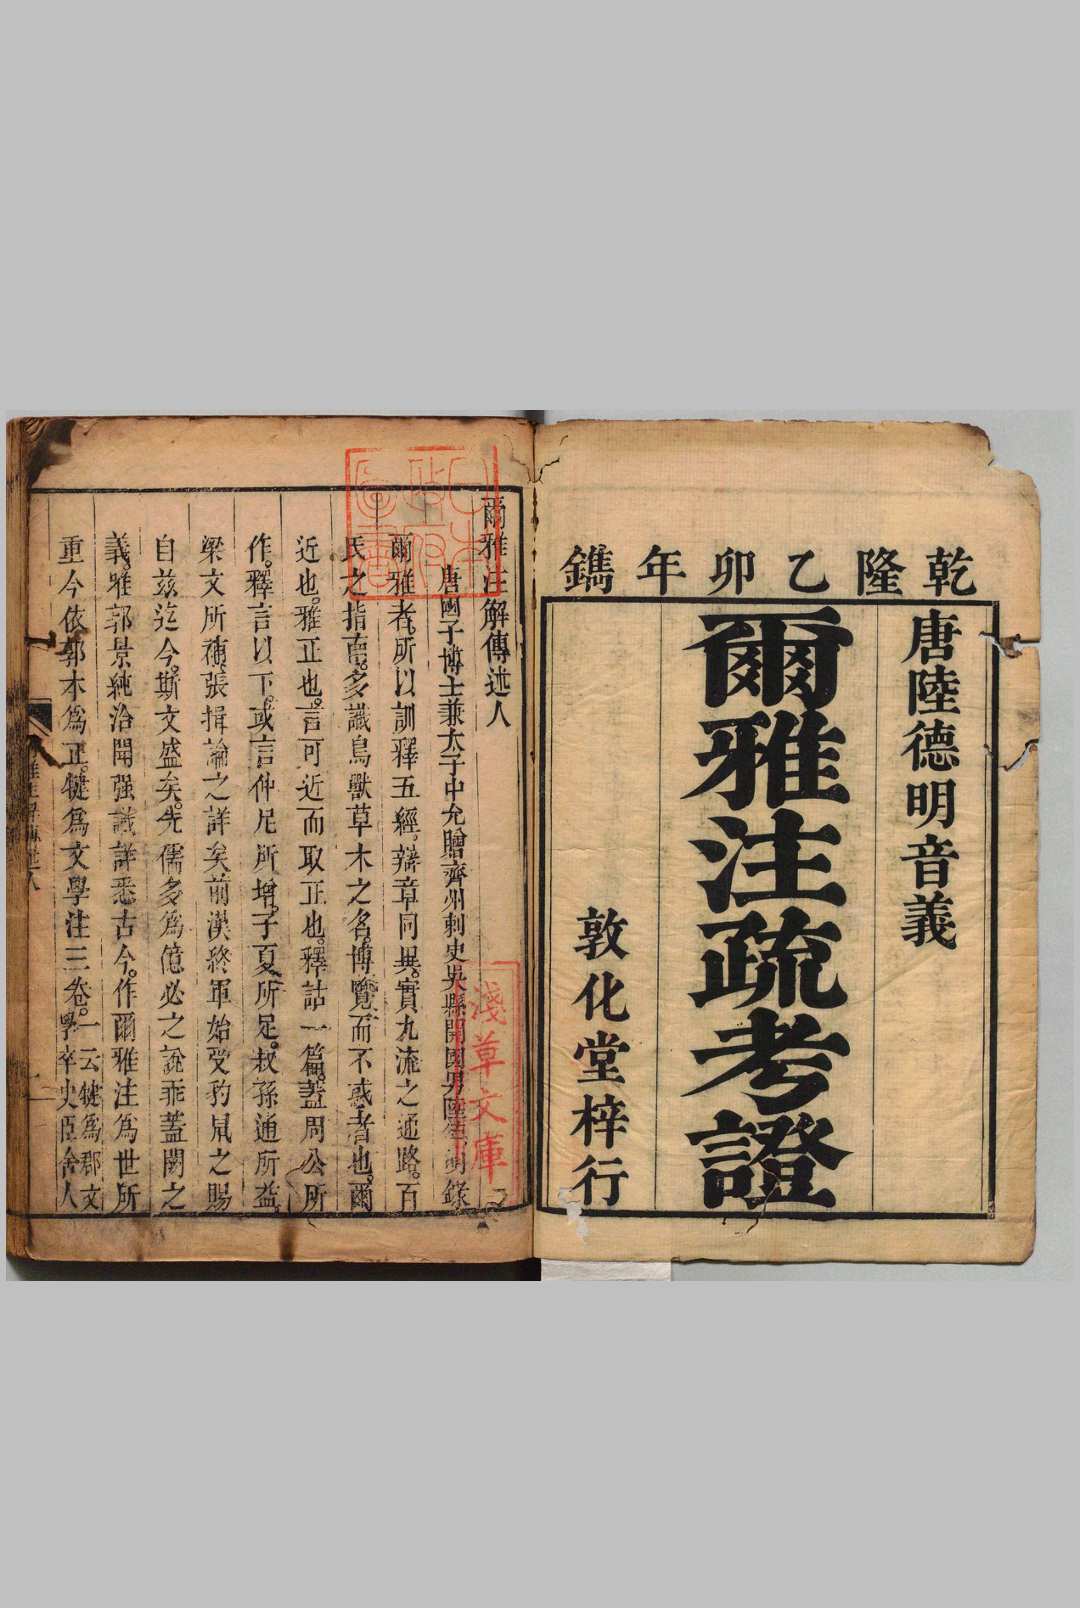 乾隆乙卯年鐫
唐陸德明音義
爾雅注疏考證
敦化堂梓行
爾雅注解傳述人
唐國子博士兼太子中允贈齊州刺史吳縣開國男陸德明錄
爾雅者。所以訓釋五經。辯章同異。實九流之通路。百
氏之指南。多識鳥獸草木之名。博覽而不惑者也。爾
近也。雅正也。言可近而取正也。釋詁一篇。蓋周公所
作。釋言以下。或言仲尼所增。子夏所足。叔孫通所益。
梁文所補。張揖論之詳矣。前漢終軍始受豹鼠之賜
自茲迄今。斯文盛矣。先儒多爲億必之說乖蓋闕之
義。雅郭景純洽聞强識詳悉古今。作爾雅注爲世所
重今依郭本爲正。犍爲文學注三卷。一云犍爲郡文
學卒史臣舍人
淺草文庫